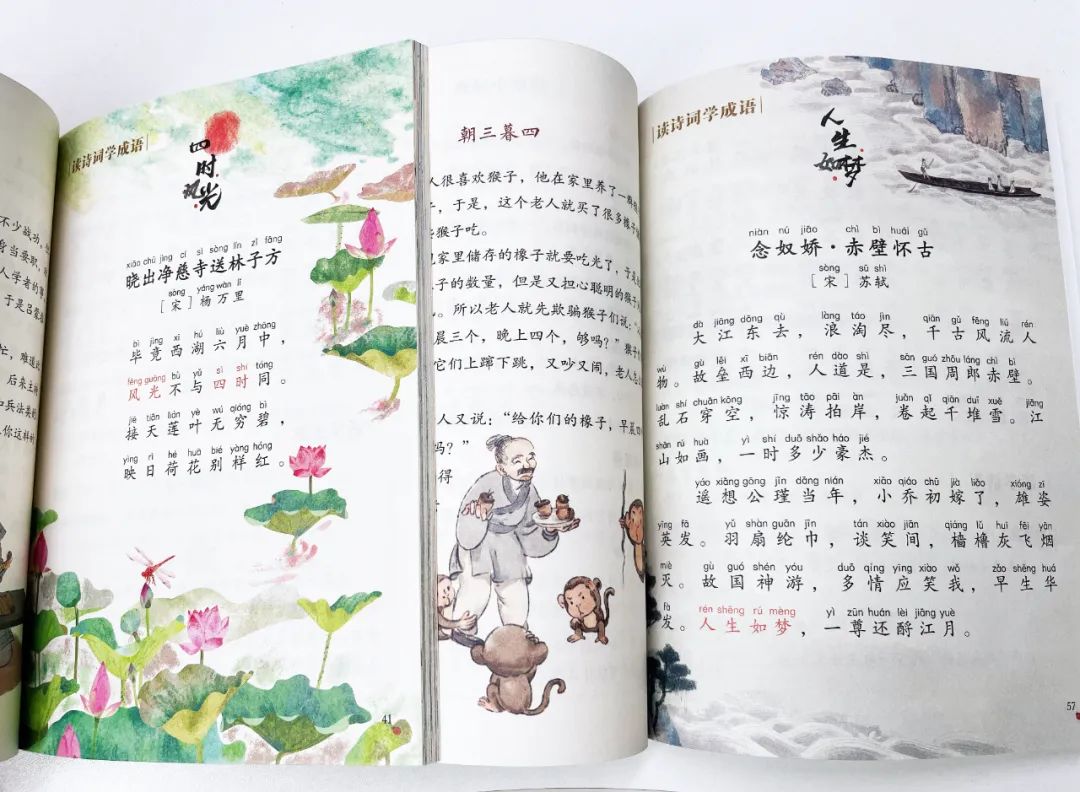 不少战功。
身当要职，
人学者的
于是吕蒙
忙，难道
后来主
和兵法类的
你这样的
读诗词学成语
四时风光
xiǎo chū jìng cí sì sòng lín zǐ fāng
晓出净慈寺送林子方
sòng yáng wàn lǐ
［宋］杨万里
bì jìng xī hú liù yuè zhōng
毕竟西湖六月中，
fēng guāng bù yǔ sì shí tóng
风光不与四时同。
jiē tiān lián yè wú qióng bì
接天莲叶无穷碧，
yìng rì hé huā bié yàng hóng
映日荷花别样红。
41
朝三暮四
人很喜欢猴子，他在家里养了一群
，于是，这个老人就买了很多橡子
猴子吃。
家里储存的橡子就要吃光了，于是
子的数量，但是又担心聪明的猴子
。所以老人就先欺骗猴子们说：“
晨三个，晚上四个，够吗？”猴子
它们上蹿下跳，又吵又闹，老人怎么
人又说：“给你们的橡子，早晨四
吗？”
得
读诗词学成语
人生如梦
niàn nú jiāo chì bì huái gǔ
念奴娇·赤壁怀古
sòng sū shì
［宋］苏轼
dà jiāng dōng qù làng táo jìn qiān gǔ fēng liú rén
大江东去，浪淘尽，千古风流人
wù gù lěi xī biān rén dào shì sān guó zhōu láng chì bì
物。故垒西边，人道是，三国周郎赤壁。
luàn shí chuān kōng jīng tāo pāi àn juǎn qǐ qiān duī xuě jiāng
乱石穿空，惊涛拍岸，卷起千堆雪。江
shān rú huà yì shí duō shǎo háo jié
山如画，一时多少豪杰。
yáo xiǎng gōng jǐn dāng nián xiǎo qiáo chū jià liǎo xióng zī
遥想公瑾当年，小乔初嫁了，雄姿
yīng fā yǔ shàn guān jīn tán xiào jiān qiáng lǔ huī fēi yān
英发。羽扇纶巾，谈笑间，樯橹灰飞烟
miè gù guó shén yóu duō qíng yīng xiào wǒ zǎo shēng huá
灭。故国神游，多情应笑我，早生华
fà rén shēng rú mèng yì zūn huán lèi jiāng yuè
发。人生如梦，一尊还酹江月。
57